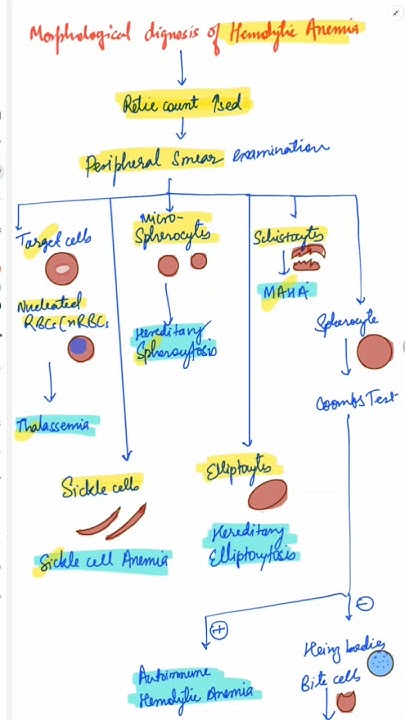 Morphological dignosis of Hemolytic Anemia
Retic count ↑sed
Peripheral Smear examination
Target cells
Micro-
Spherocytes
Schistocytes
MAHA
Nucleated
RBCs (nRBCs
Hereditary
Spherocytosis
Spherocyte
Thalassemia
Coombs Test
Sickle cells
Elliptocytes
Sickle cell Anemia
Hereditary
Elliptocytosis
+
−
Autoimmune
Hemolytic Anemia
Heinz bodies
Bite cells